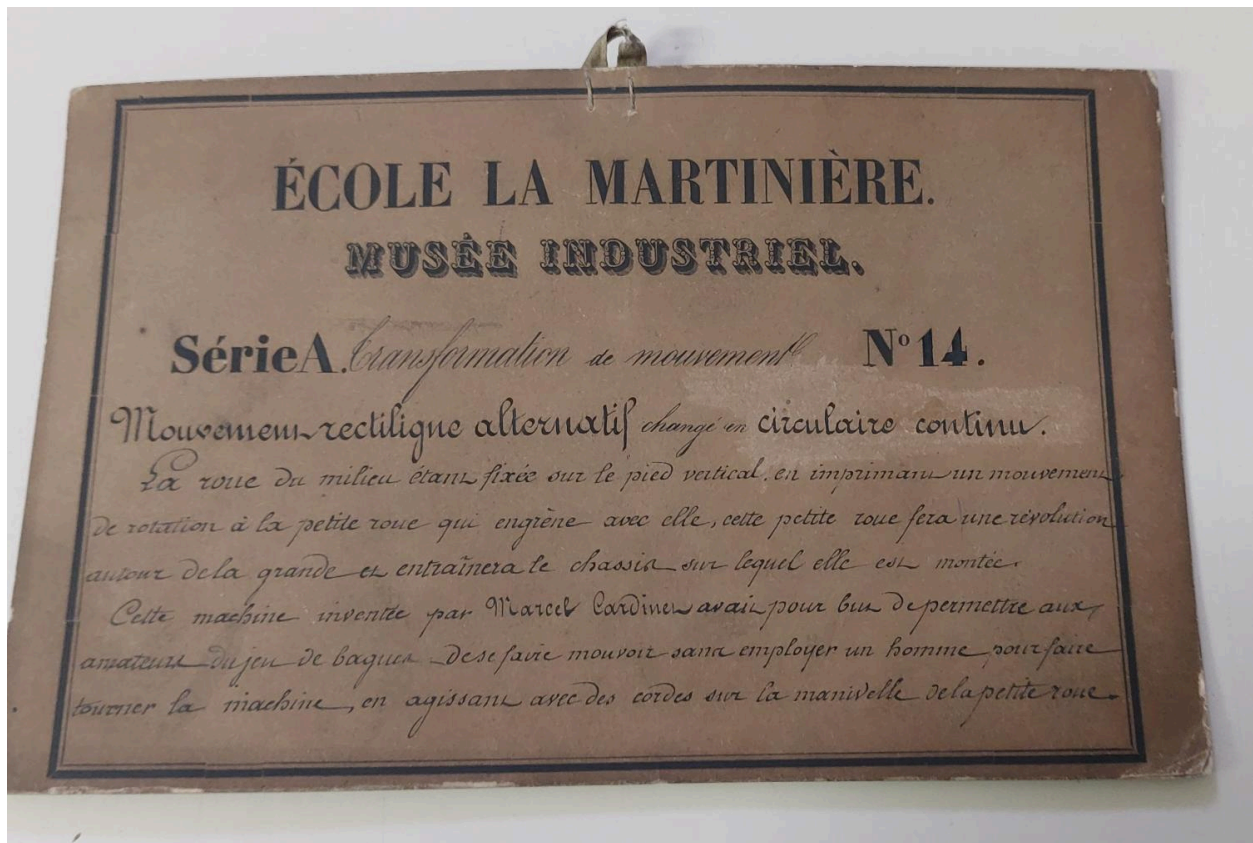 ÉCOLE LA MARTINIÈRE.
MUSÉE INDUSTRIEL.
Série A. Transformation de mouvement N° 14.
Mouvement rectiligne alternatif changé en circulaire continu.
La roue du milieu étant fixée sur le pied vertical, en imprimant un mouvement
de rotation à la petite roue qui engrène avec elle, cette petite roue fera une révolution
autour de la grande et entraînera le chassis sur lequel elle est montée.
Cette machine inventée par Marcel Cardinet avait pour but de permettre aux
amateurs du jeu de bagues de se faire mouvoir sans employer un homme pour faire
tourner la machine, en agissant avec des cordes sur la manivelle de la petite roue.